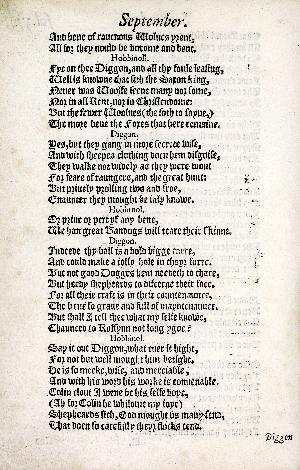 September.
And bene of rauenous Wolues yrent,
All for they nould be buxome and bent.
Hobbinoll.
Fye on thee Diggon, and all thy foule leasing,
Well is knowne that sith the Saxon king,
Neuer was Woolfe seene many nor some,
Nor in all Kent, nor in Christendome:
But the fewer Woolues (the soth to sayne,)
The more bene the Foxes that here remaine.
Diggon.
Yes, but they gang in more secrete wise,
And with sheepes clothing doen hem disguise,
They walke not widely as they were wont
For feare of raungers, and the great hunt:
But priuely prolling two and froe,
Enaunter they mought be inly knowe.
Hobbinol.
Or priue or pert yf any bene,
We han great Bandogs will teare their skinne.
Diggon.
Indeede thy ball is a bold bigge curre,
And could make a iolly hole in theyr furre.
But not good Dogges hem needeth to chace,
But heedy shepheards to discerne their face.
For all their craft is in their countenaunce,
They bene so graue and full of mayntenaunce.
But shall I tell thee what my selfe knowe,
Chaunced to Roffynn not long ygoe?
Hobbinol.
Say it out Diggon, what euer it hight,
For not but well mought him betight,
He is so meeke, wise, and merciable,
And with his word his worke is conuenable.
Colin clout I wene be his selfe boye,
(Ah for Colin he whilome my ioye)
Shepheards sich, God mought vs many send,
That doen so carefully theyr flocks tend.
Diggon